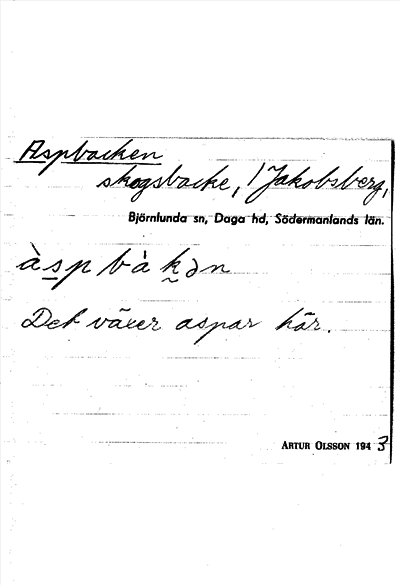 Aspbacken
skogsbacke, / Jakobsberg,
Björnlunda sn, Daga hd, Södermanlands län.
àspbàk̰ən
Det växer aspar här.
ARTUR OLSSON 1943